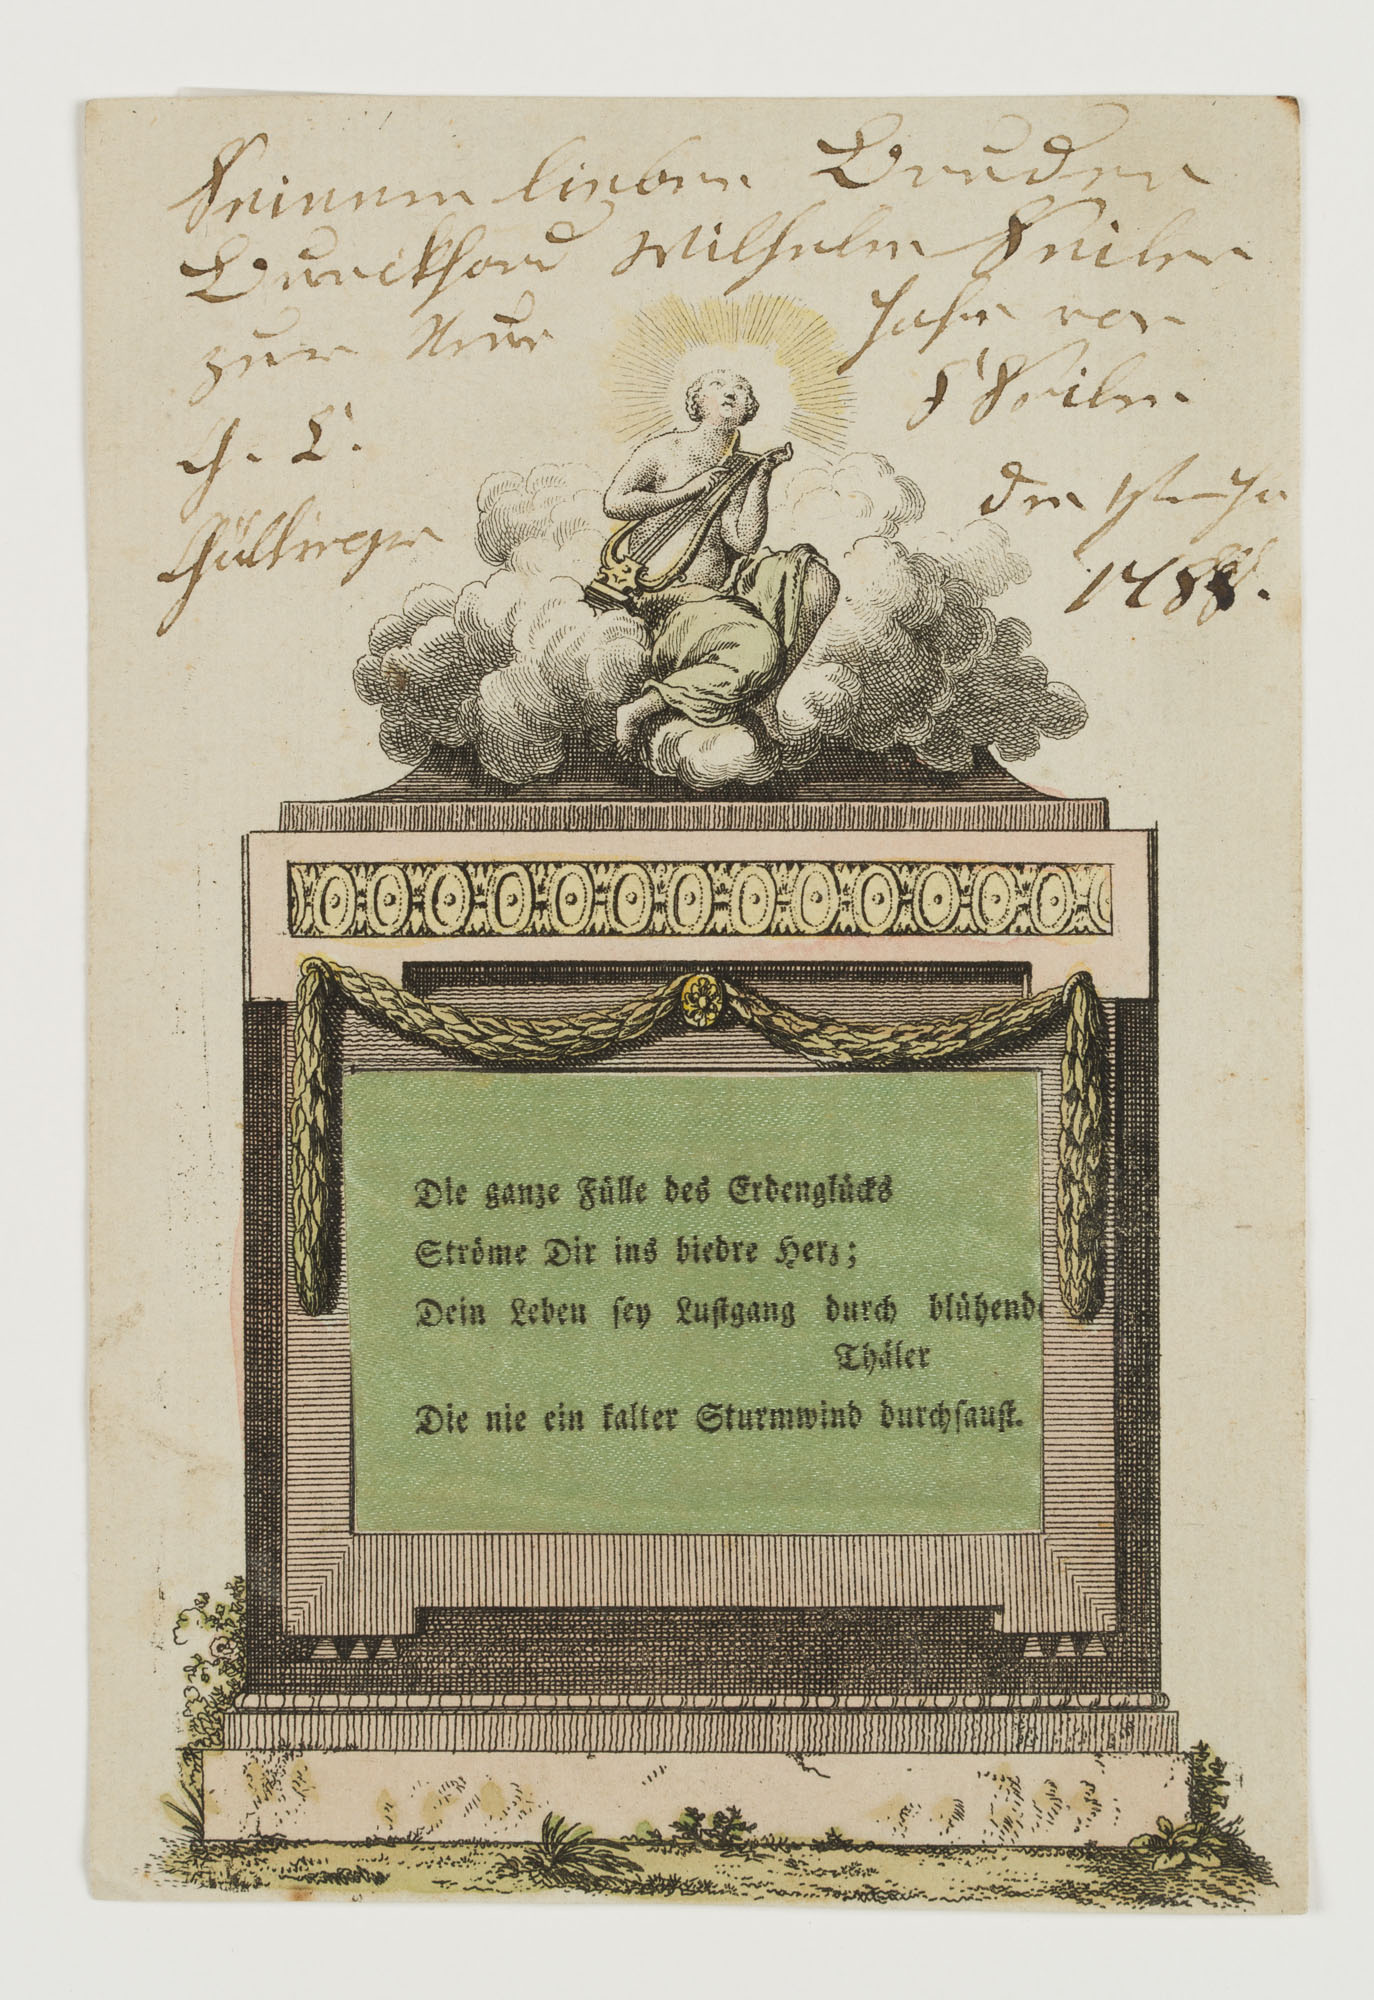 Seinem lieben Bruder
Burckhard Wilhelm Seiler
zum Neue Jahr von
G. L. Seiler
Göttingen den 1st Ja
1788.
Die ganze Fülle des Erdenglücks
Ströme Dir ins biedre Herz;
Dein Leben sey Lustgang durch blühende
Thäler
Die nie ein kalter Sturmwind durchsaust.